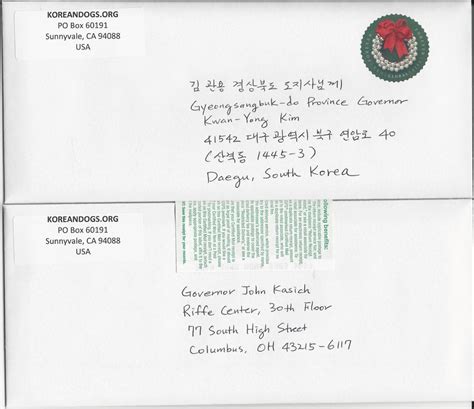 KOREANDOGS.ORG
PO Box 60191
Sunnyvale, CA 94088
USA
김 관용 경상북도 도지사님께
Gyeongsangbuk-do Province Governor
Kwan-Yong Kim
41542 대구 광역시 북구 연암로 40
(산격동 1445-3)
Daegu, South Korea
KOREANDOGS.ORG
PO Box 60191
Sunnyvale, CA 94088
USA
following benefits:
Governor John Kasich
Riffe Center, 30th Floor
77 South High Street
Columbus, OH 43215-6117